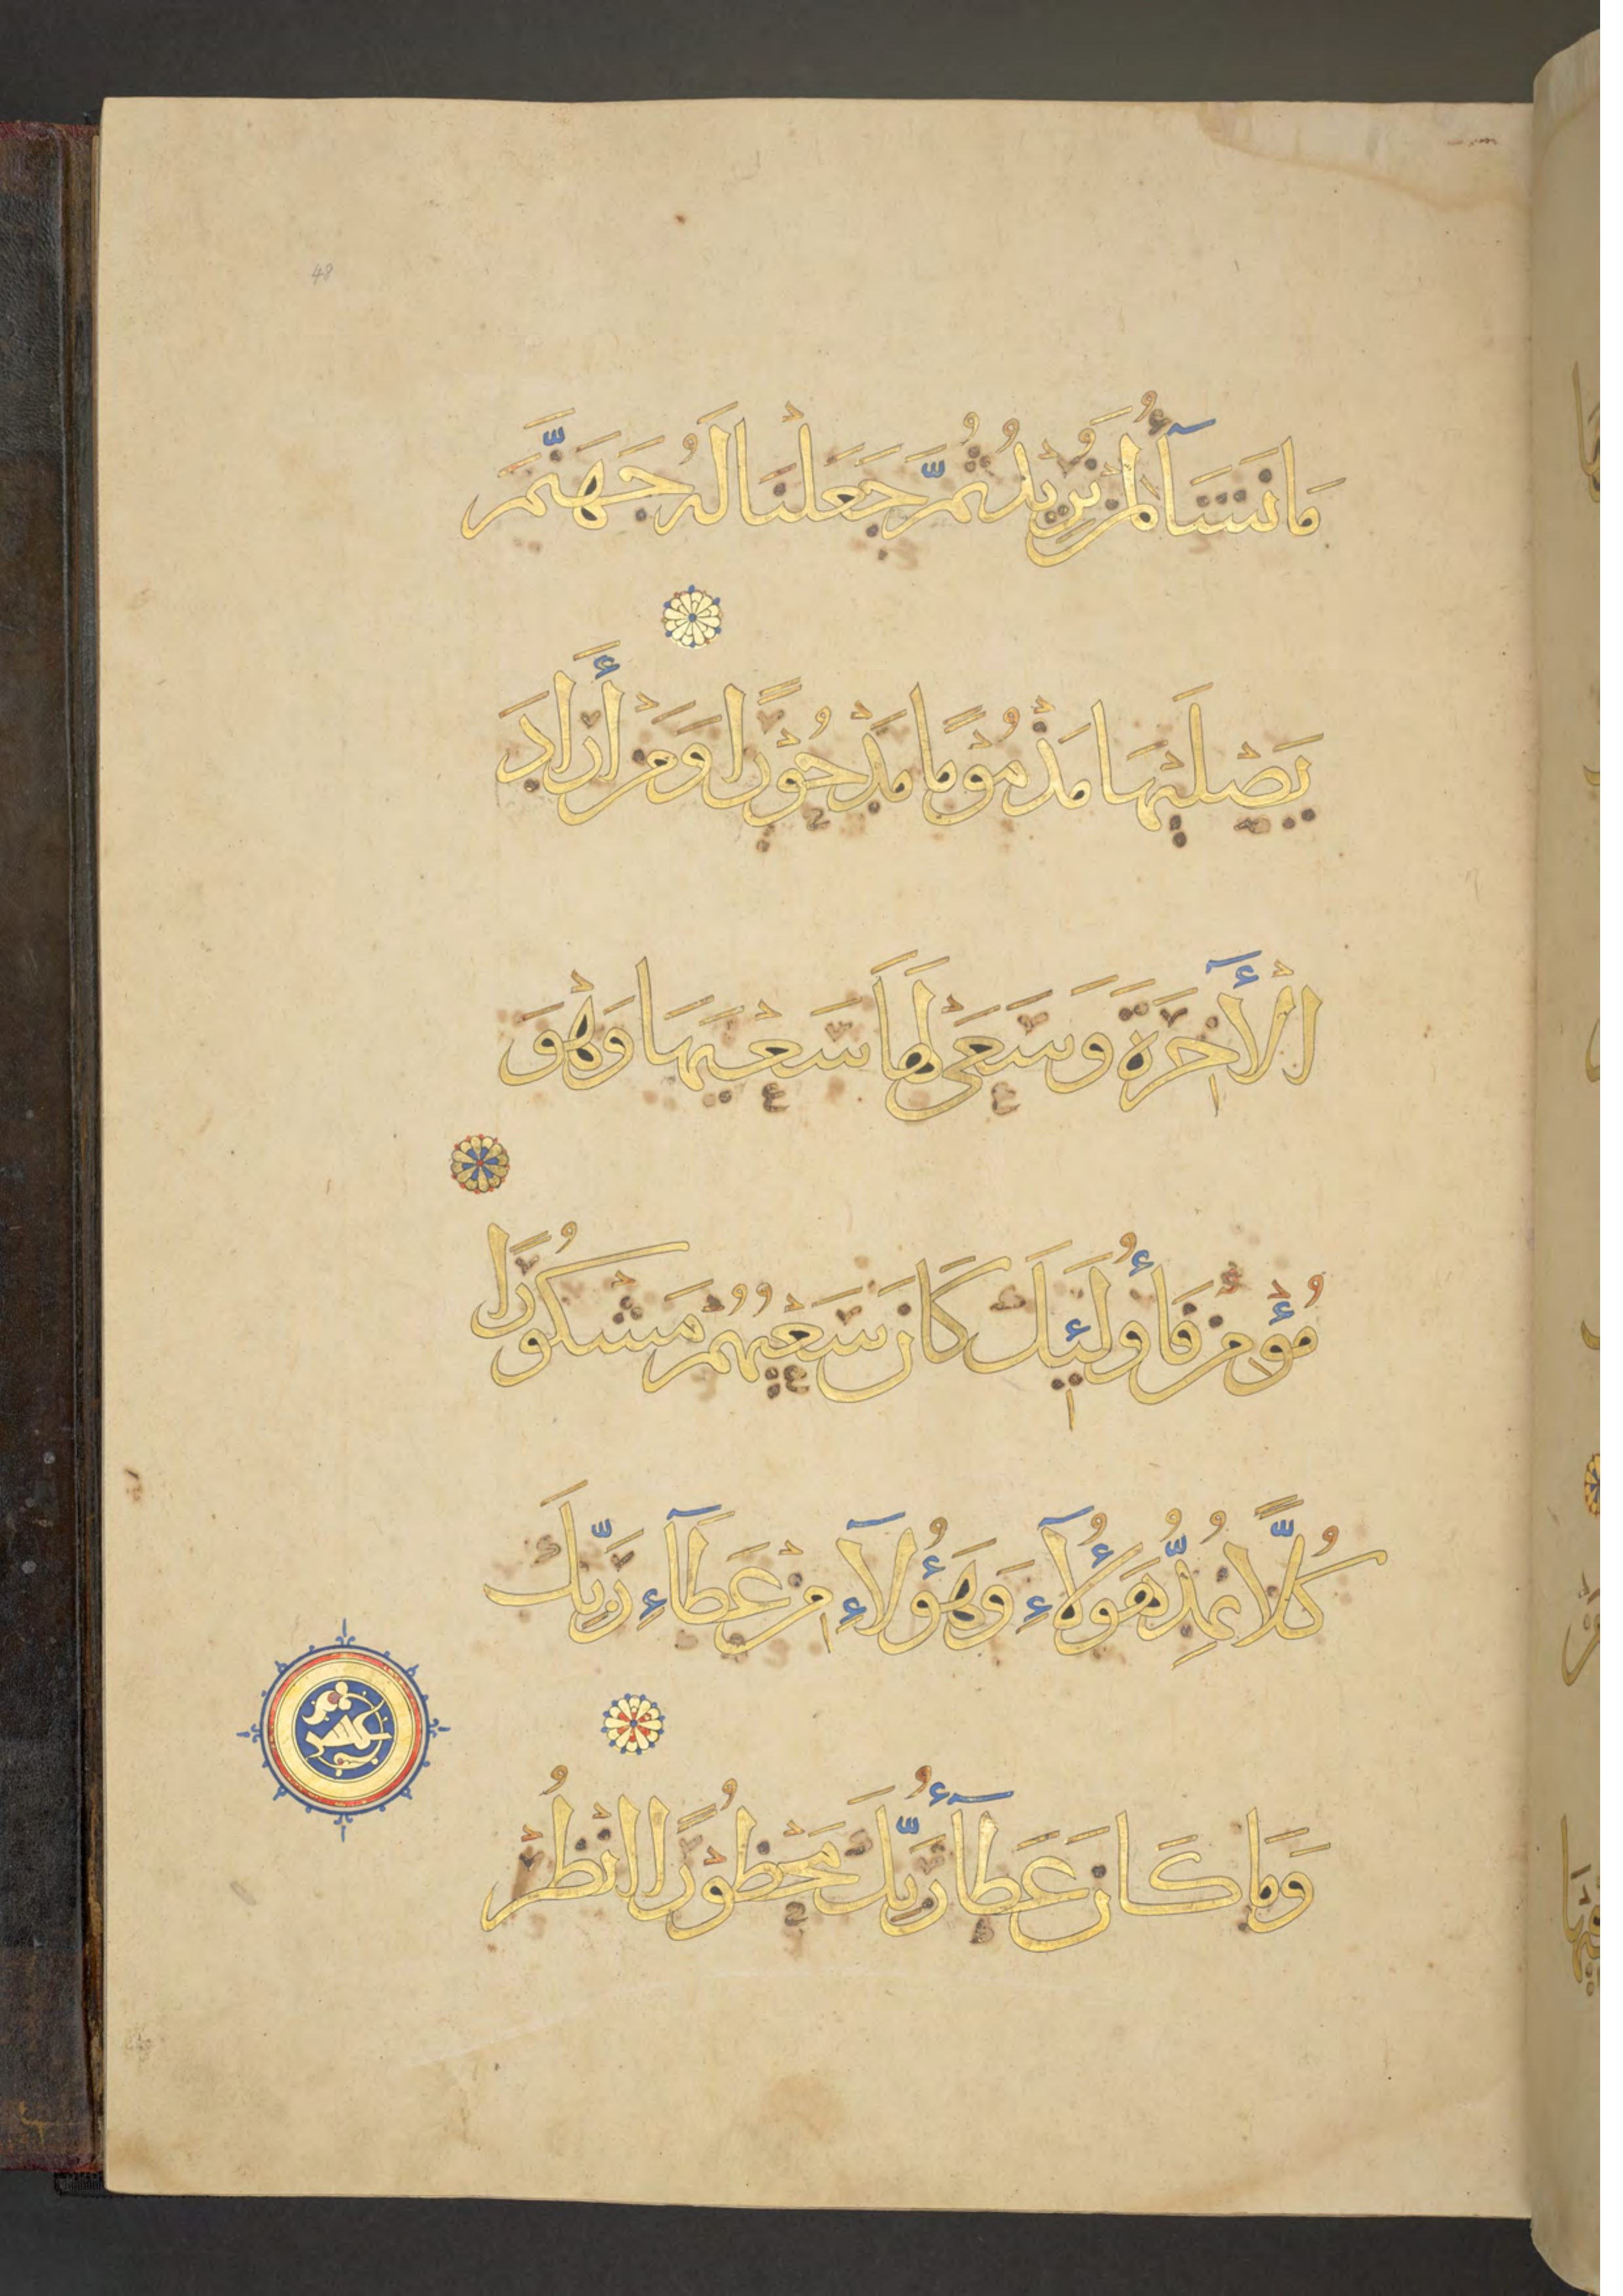 48
مَا نَشَآءُ لِمَنْ نُرِيدُ ثُمَّ جَعَلْنَا لَهُ جَهَنَّمَ
يَصْلَيٰهَا مَذْمُوْمًا مَدْحُوْرًا وَمَنْ أَرَادَ
الْأٓخِرَةَ وَسَعَىٰ لَهَا سَعْيَهَا وَهْوَ
مُؤْمِنٌ فَأُولَـٰئِكَ كَانَ سَعْيُهُمْ مَشْكُورًا
كُلًّا نُمِدُّ هَـٰؤُلَآءِ وَهَـٰؤُلَآءِ مِنْ عَطَآءِ رَبِّكَ
وَمَا كَانَ عَطَآءُ رَبِّكَ مَحْظُوْرًا انْظُرْ